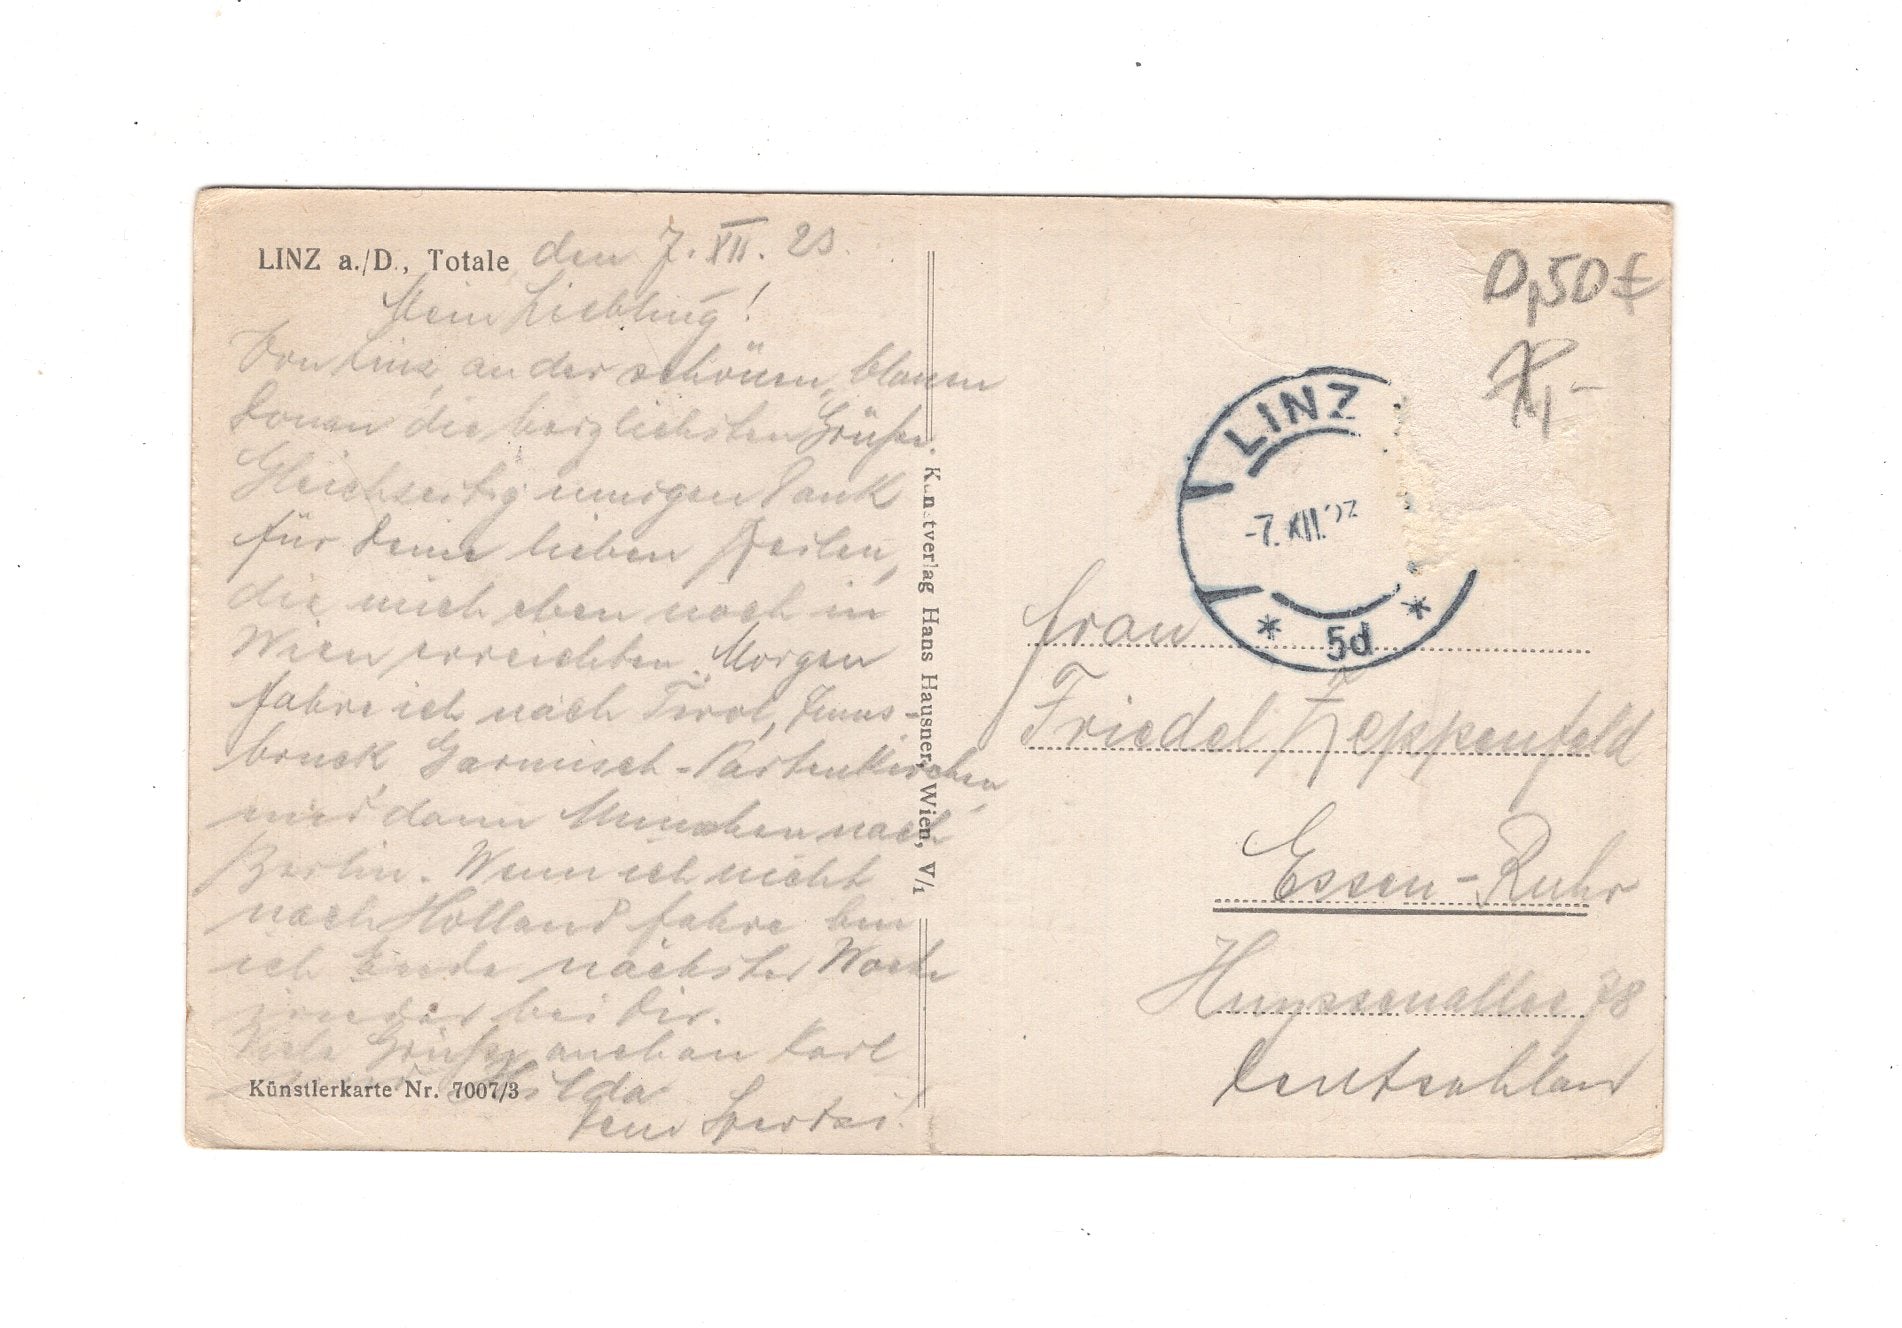 LINZ a./D., Totale den 7. XII. 23.
Mein Liebling!
Von Linz, an der schönen, blauen
Donau die herzlichsten Grüße.
Gleichzeitig innigen Dank
für Deine lieben Zeilen,
die mich eben noch in
Wien erreichten. Morgen
fahre ich nach Tirol, Inns-
bruck, Garmisch-Partenkirchen,
und dann München nach
Berlin. Wenn ich nicht
nach Holland fahre bin
ich Ende nächster Woche
wieder bei Dir.
Viele Grüße auch an Karl
Hilda
Dein
Künstlerkarte Nr. 7007/3
Kunstverlag Hans Hausner, Wien, V/1
0,50 €
1,-
LINZ
-7.XII.23
* 5d *
Frau
Friedel Zeppenfeld
Essen-Ruhr
Huyssenallee 78
Deutschland